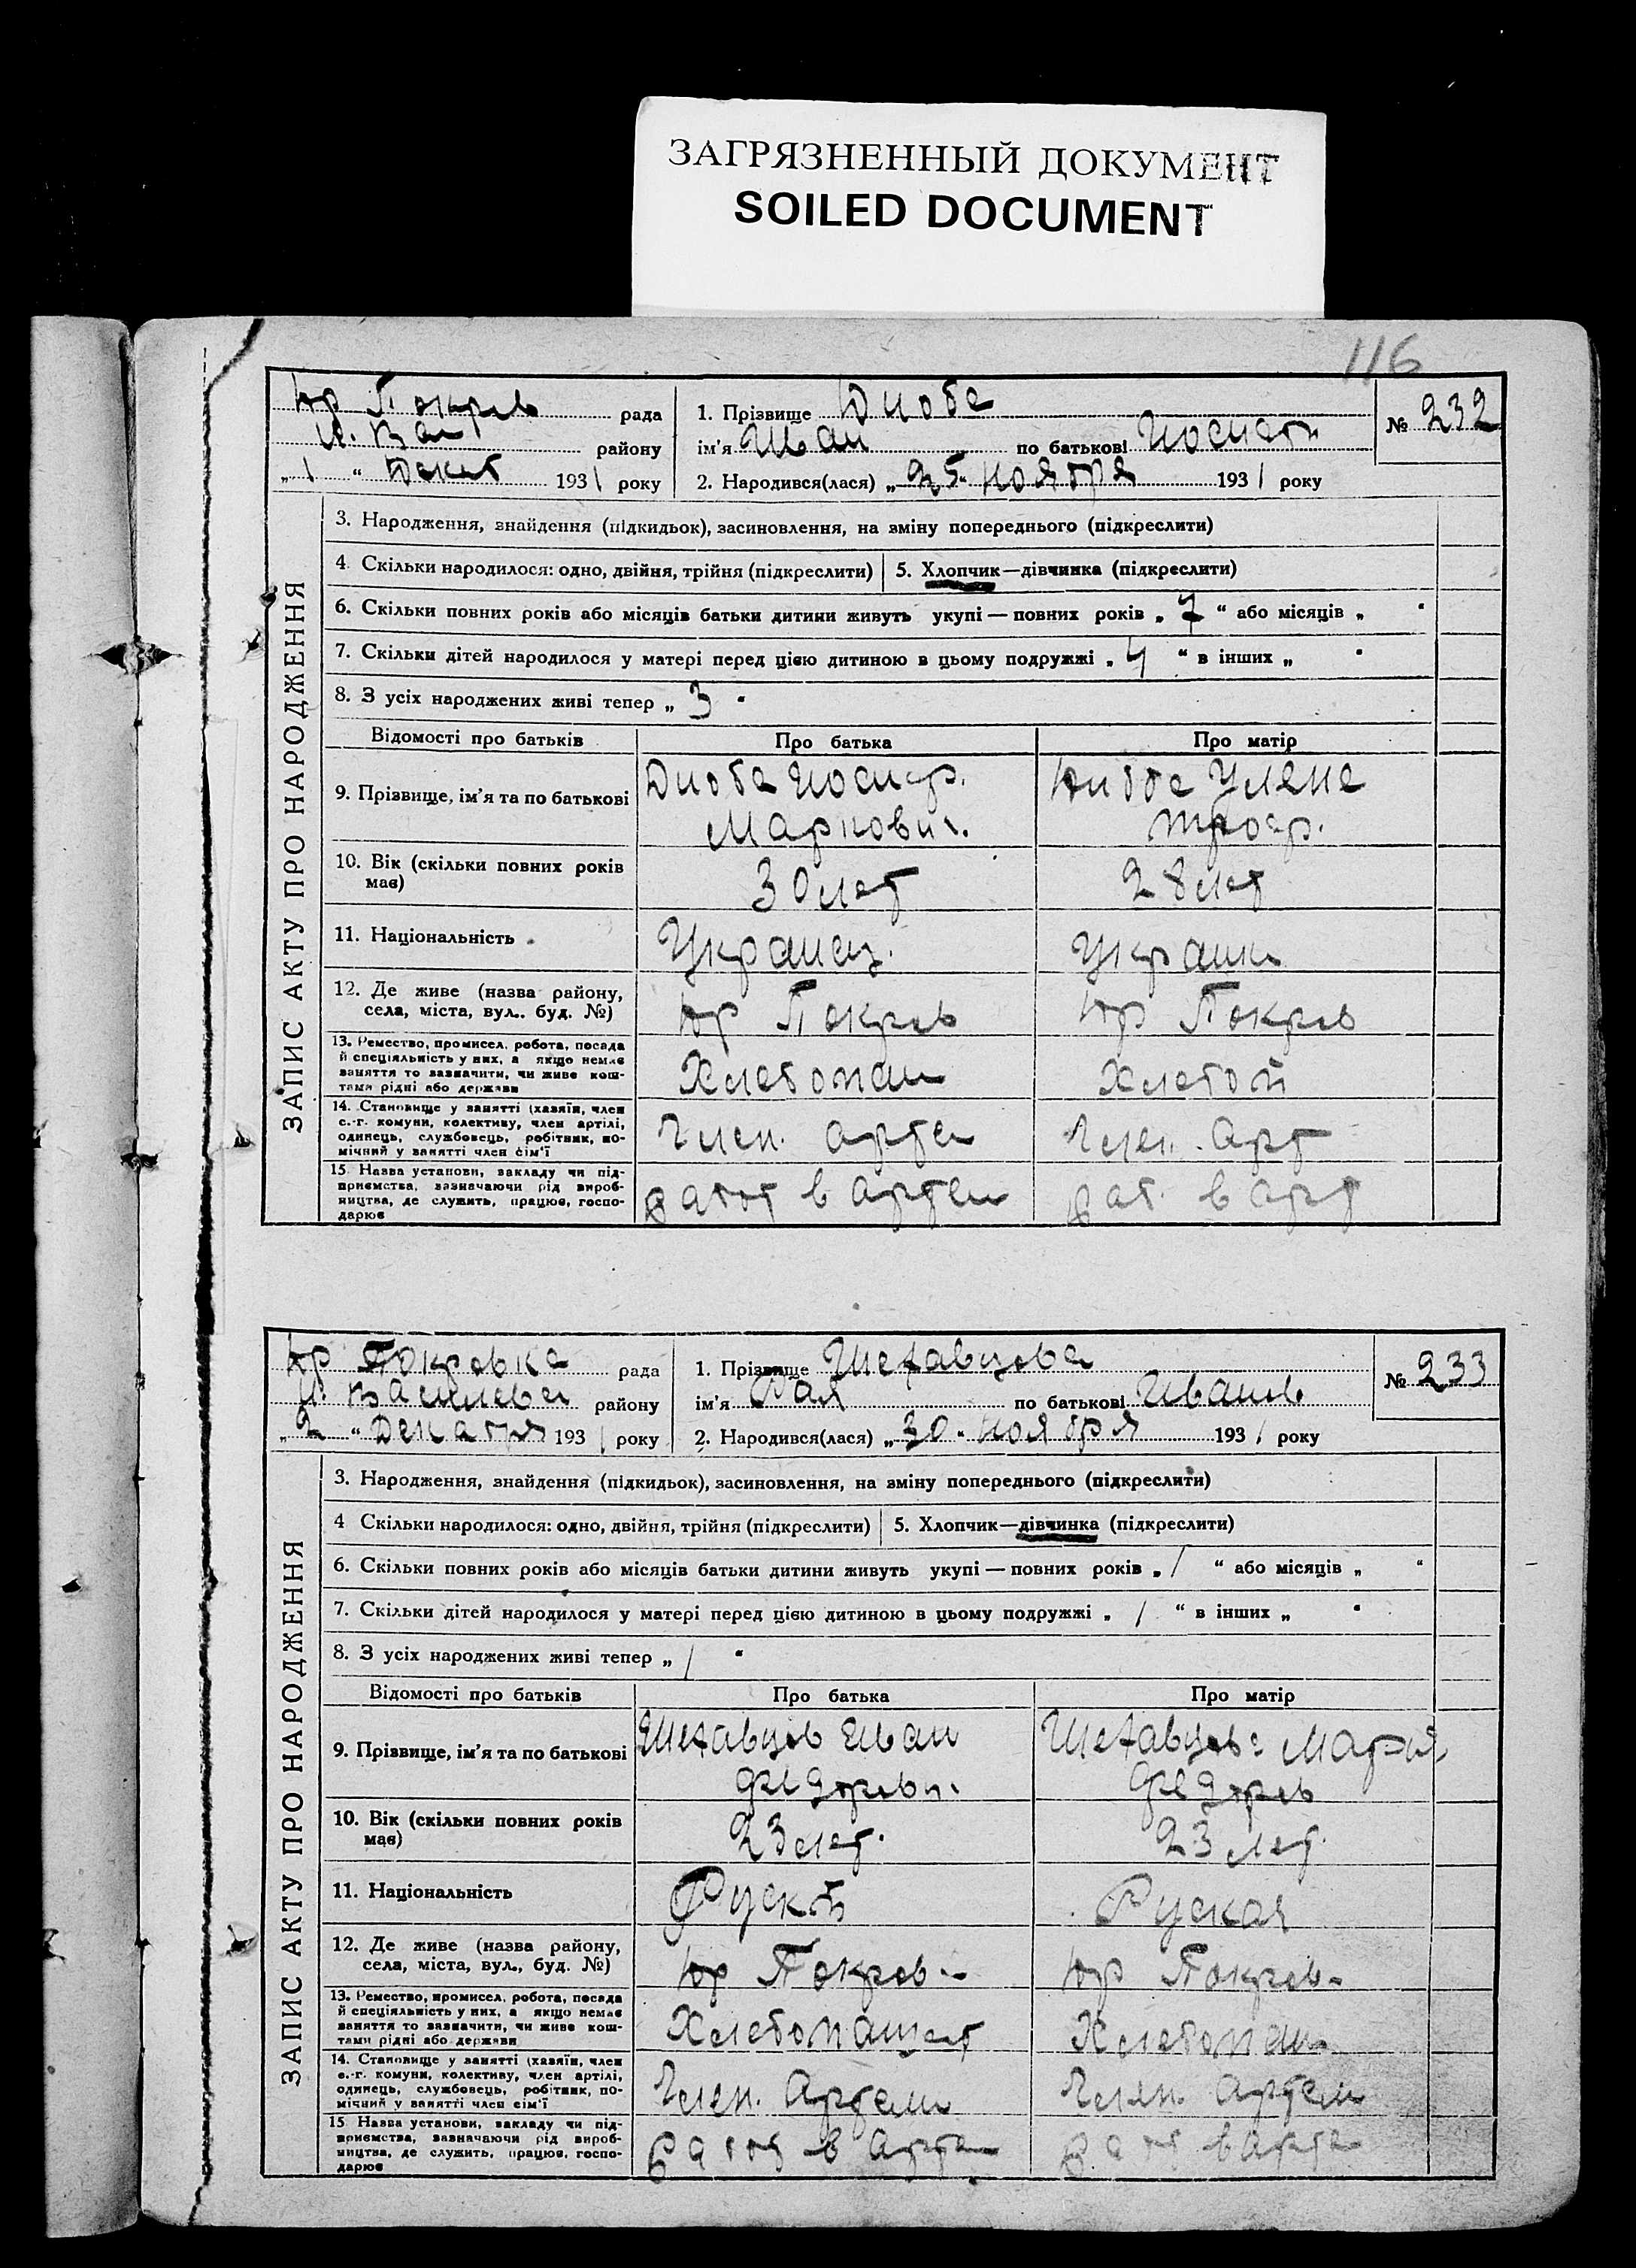 ЗАГРЯЗНЕННЫЙ ДОКУМЕНТ
SOILED DOCUMENT
116
Юр Покров рада
И. Вас району
„ 1 “ Декаб 1931 року
1. Прізвище
ім'я Иван по батькові
2. Народився(лася) „ 25 “ ноября 1931 року
№ 232
ЗАПИС АКТУ ПРО НАРОДЖЕННЯ
3. Народження, знайдення (підкидьок), засиновлення, на зміну попереднього (підкреслити)
4. Скільки народилося: одно, двійня, трійня (підкреслити) 5. Хлопчик—дівчинка (підкреслити)
6. Скільки повних років або місяців батьки дитини живуть укупі — повних років „ 7 “ або місяців „ “
7. Скільки дітей народилося у матері перед цією дитиною в цьому подружжі „ 4 “ в інших „ “
8. З усіх народжених живі тепер „ 3 “
Відомості про батьків Про батька Про матір
9. Прізвище, ім'я та по батькові Уляна
Маркович.
10. Вік (скільки повних років має) 30 лет 28 лет
11. Національність Украинц. Украин
12. Де живе (назва району, села, міста, вул.. буд. №) Юр Покров Юр Покров
13. Ремество, промисел, робота, посада й спеціяльність у них, а якщо немає заняття то зазначити, чи живе коштами рідні або держави Хлебопаш Хлебоп
14. Становище у занятті (хазяїн, член с.-г. комуни, колективу, член артілі, одинець, службовець, робітник, помічний у занятті член сім'ї Член. арте Член. Арт
15. Назва установи, закладу чи підприємства, зазначаючи рід виробництва, де служить, працює, господарює работ в артели раб. в арт
Юр Покровка рада
И. Василевск району
„ 2 “ Декабря 1931 року
1. Прізвище Шехавцова
ім'я Рая по батькові Иванов
2. Народився(лася) „ 30 “ ноября 1931 року
№ 233
ЗАПИС АКТУ ПРО НАРОДЖЕННЯ
3. Народження, знайдення (підкидьок), засиновлення, на зміну попереднього (підкреслити)
4 Скільки народилося: одно, двійня, трійня (підкреслити) 5. Хлопчик—дівчинка (підкреслити)
6. Скільки повних років або місяців батьки дитини живуть укупі — повних років „ 1 “ або місяців „ “
7. Скільки дітей народилося у матері перед цією дитиною в цьому подружжі „ 1 “ в інших „ “
8. З усіх народжених живі тепер „ 1 “
Відомості про батьків Про батька Про матір
9. Прізвище, ім'я та по батькові Шехавцов Иван Шехавцова Мария
Федорови. Федоров
10. Вік (скільки повних років має) 23 лет. 23 лет.
11. Національність Руской Руская
12. Де живе (назва району, села, міста, вул., буд. №) Юр Покров Юр Покров
13. Ремество, промисел, робота, посада й спеціяльність у них, а якщо немає заняття то зазначити, чи живе коштами рідні або держави Хлебопашест Хлебопаш
14. Становище у занятті (хазяїн, член с.-г. комуни, колективу, член артілі, одинець, службовець, робітник, помічний у занятті член сім'ї Член. Артели Член. Артели
15 Назва установи, закладу чи підприємства, зазначаючи рід виробництва, де служить, працює, господарює работ в арте работ в арте